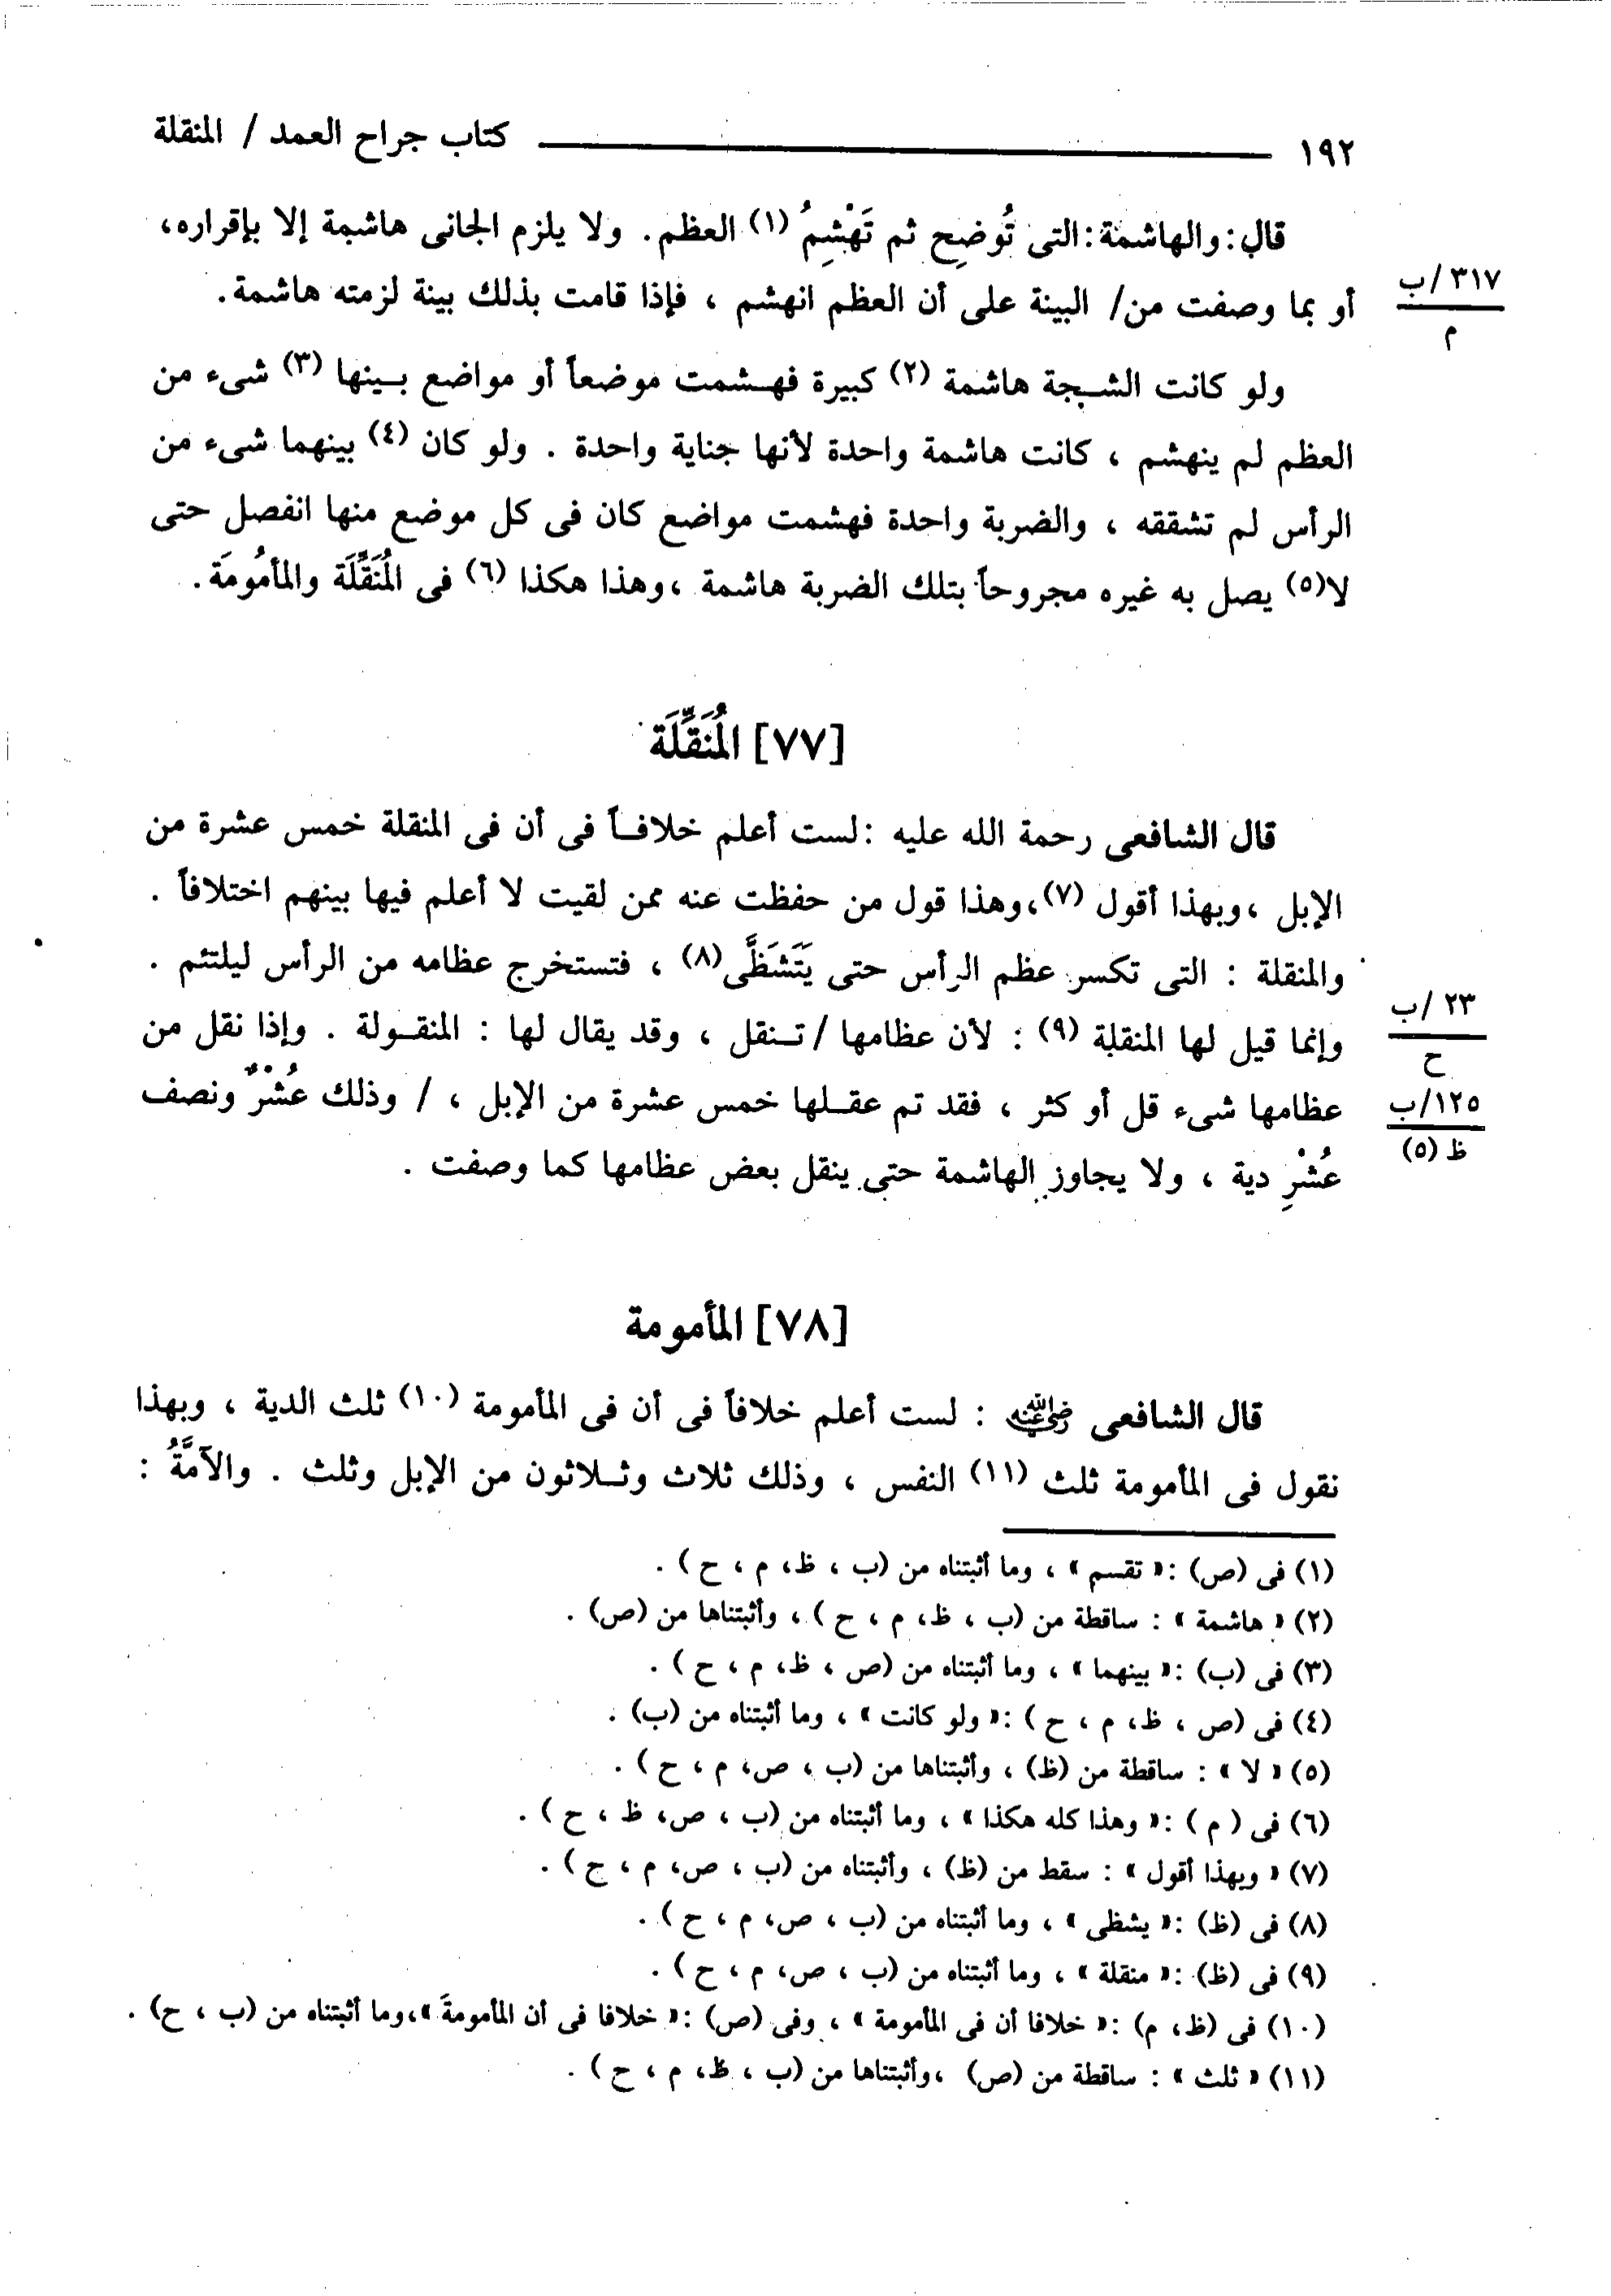 ١٩٢ كتاب جراح العمد / المنقلة
قال: والهاشمة: التى تُوضِح ثم تَهْشِمُ (١) العظم. ولا يلزم الجانى هاشمة إلا بإقراره،
أو بما وصفت من/ البينة على أن العظم انهشم ، فإذا قامت بذلك بينة لزمته هاشمة.
٣١٧/ب
م
ولو كانت الشجة هاشمة (٢) كبيرة فهشمت موضعاً أو مواضع بينها (٣) شىء من
العظم لم ينهشم ، كانت هاشمة واحدة لأنها جناية واحدة . ولو كان (٤) بينهما شىء من
الرأس لم تشققه ، والضربة واحدة فهشمت مواضع كان فى كل موضع منها انفصل حتى
لا(٥) يصل به غيره مجروحاً بتلك الضربة هاشمة ،وهذا هكذا (٦) فى المُنَقِّلَة والمأمُومَة.
[٧٧] المُنَقِّلَة
قال الشافعى رحمة الله عليه :لست أعلم خلافاً فى أن فى المنقلة خمس عشرة من
الإبل ،وبهذا أقول (٧)،وهذا قول من حفظت عنه ممن لقيت لا أعلم فيها بينهم اختلافاً .
والمنقلة : التى تكسر عظم الرأس حتى يَتَشَظَّى(٨) ، فتستخرج عظامه من الرأس ليلتئم .
وإنما قيل لها المنقلة (٩) : لأن عظامها /تنقل ، وقد يقال لها : المنقولة . وإذا نقل من
٢٣ /ب
ح
عظامها شىء قل أو كثر ، فقد تم عقلها خمس عشرة من الإبل ، / وذلك عُشْرٌ ونصف
١٢٥/ب
ظ (٥)
عُشْرِ دية ، ولا يجاوز الهاشمة حتى ينقل بعض عظامها كما وصفت .
[٧٨] المأمومة
قال الشافعى رضي الله عنه : لست أعلم خلافاً فى أن فى المأمومة (١٠) ثلث الدية ، وبهذا
نقول فى المأمومة ثلث (١١) النفس ، وذلك ثلاث وثلاثون من الإبل وثلث . والآمَّةُ :
(١) فى (ص) :« تقسم » ، وما أثبتناه من (ب ، ظ، م ، ح ) .
(٢) « هاشمة » : ساقطة من (ب ، ظ، م ، ح ) ، وأثبتناها من (ص) .
(٣) فى (ب) :« بينهما » ، وما أثبتناه من (ص ، ظ، م ، ح ) .
(٤) فى (ص ، ظ، م ، ح ) :« ولو كانت » ، وما أثبتناه من (ب) .
(٥) « لا » : ساقطة من (ظ) ، وأثبتناها من (ب ، ص، م ، ح ) .
(٦) فى ( م ) :« وهذا كله هكذا » ، وما أثبتناه من (ب ، ص، ظ ، ح ) .
(٧) « وبهذا أقول » : سقط من (ظ) ، وأثبتناه من (ب ، ص، م ، ح ) .
(٨) فى (ظ) :« يشظى » ، وما أثبتناه من (ب ، ص، م ، ح ) .
(٩) فى (ظ) :« منقلة » ، وما أثبتناه من (ب ، ص، م ، ح ) .
(١٠) فى (ظ، م) :« خلافا أن فى المأمومة » ، وفى (ص) :« خلافا فى أن المأمومة »،وما أثبتناه من (ب ، ح) .
(١١) « ثلث » : ساقطة من (ص) ،وأثبتناها من (ب ، ظ، م ، ح ) .